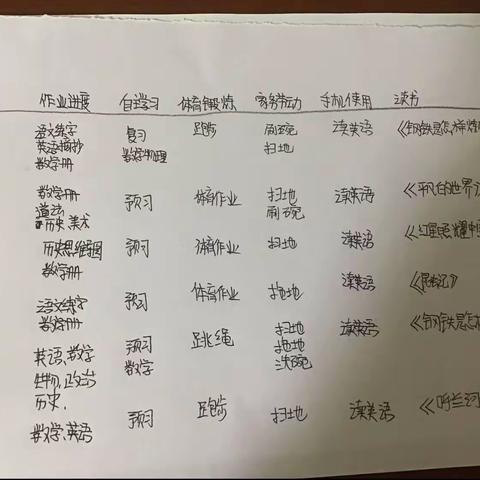 作业进度 自主学习 体育锻炼 家务劳动 手机使用 读书
语文练字 复习 跑步 刷碗 读英语 《钢铁是怎样炼
英语摘抄 数学物理 扫地
数学册
数学册 预习 体育作业 扫地 读英语 《平凡的世界
道法 刷碗
历史 美术
历史思维导图 预习 体育作业 扫地 读英语 《红星照耀中
数学册
语文练字 预习 体育作业 拖地 读英语
数学册
英语、数学 预习 跳绳 扫地 读英语 《钢铁是怎样
生物、政治 数学 拖地
历史、 洗碗
数学、英语 预习 跑步 扫地 读英语 《呼兰河